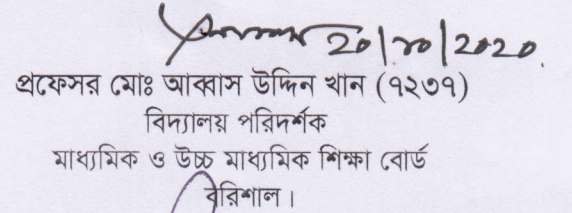 20/10/2020
প্রফেসর মোঃ আব্বাস উদ্দিন খান (৭২৩৭)
বিদ্যালয় পরিদর্শক
মাধ্যমিক ও উচ্চ মাধ্যমিক শিক্ষা বোর্ড
বরিশাল।